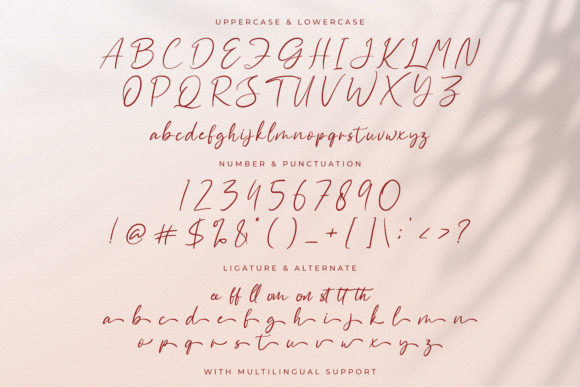 UPPERCASE & LOWERCASE
ABCDEFGHIJKLMN
OPQRSTUVWXYZ
abcdefghijklmnopqrstuvwxyz
NUMBER & PUNCTUATION
1234567890
!@#$%&*()_+[]\:'<>?
LIGATURE & ALTERNATE
ee ff ll om on st tt th
a b c d e f g h i j k l m n
o p q r s t u v w x y z
WITH MULTILINGUAL SUPPORT